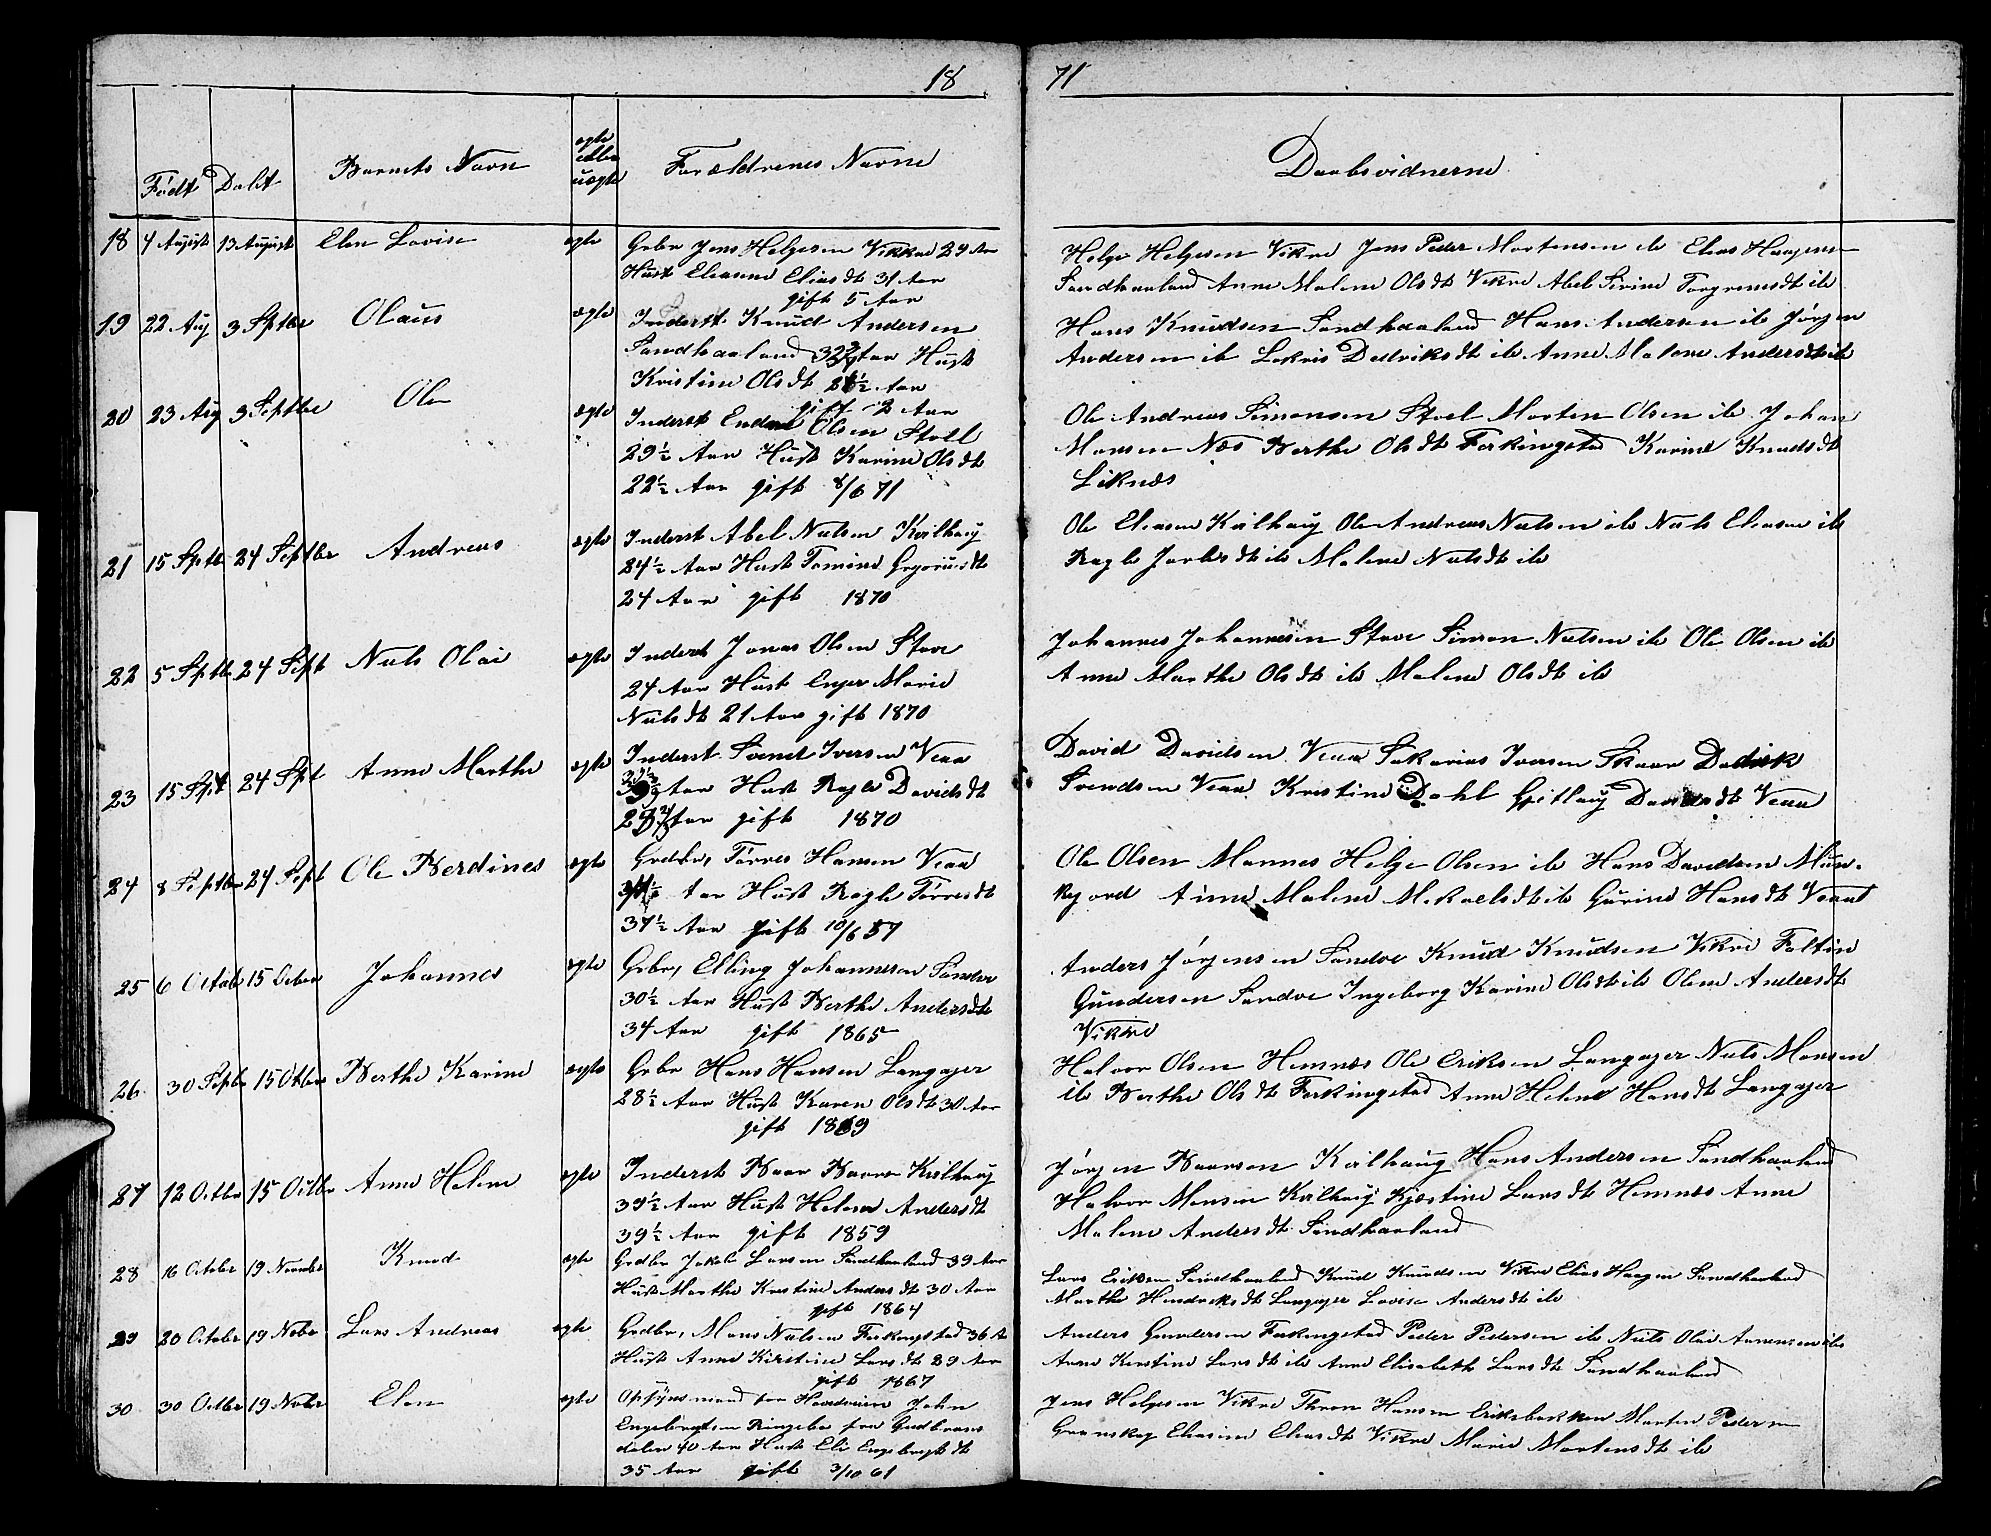 18 71
Født Døbt Barnets Navn ægte eller uægte Forældrenes Navne Daabsvidnerne
18 4 August 13 August Elen Lovise ægte Grbr Jens Helgesen Vikre 29 Aar
Hust Eleasine Eliasdt 31 Aar
gift 5 Aar
Helge Helgesen Vikre Jens Peder Mortensen ib Elias Haagens
Sandhaaland Anne Malene Olsdt Vikre Abel Sirine Torgrensdt ib
19 22 Aug 3 Septbr Olaus ægte Inderst Knud Andersen
Sandhaaland Aar Hust
Kristine Olsdt Aar
gift 2 Aar
Hans Knudsen Sandhaaland Hans Andersen ib Jørgen
Andersen ib Dedriksdt ib Anne Malene Andersdt ib
20 23 Aug 3 Septbr Ole ægte Inderst Endre Olsen Stoll
29½ Aar Hust Karine Olsdt
22½ Aar gift 8/6 71
Ole Andreas Simonsen Stoel Morten Olsen ib Johan
Monsen Næs Berthe Olsdt Ferkingstad Karine Knudsdt
Liknæs
21 15 Septb 24 Septbr Andreas ægte Inderst Abel Nielsen Kvilhaug
24½ Aar Hust Tomine Gregoriusdt
24 Aar gift 1870
Ole Eliasen Kvilhaug Ole Andreas Nielsen ib Niels Eliasen ib
Ragle Jacobsdt ib Malene Nielsdt ib
22 5 Septb 24 Sept Niels Olai ægte Inderst Jonas Olsen Stave
24 Aar Hust Enger Marie
Nielsdt 21 Aar gift 1870
Johannes Johannesen Stave Simon Nielsen ib Ole Olsen ib
Anne Marthe Olsdt ib Malene Olsdt ib
23 15 Sept 24 Spt Anne Marthe ægte Inderst Svend Iversen Veaa
Aar Hust Ragle Davidsdt
Aar gift 1870
David Davidsen Veaa Sakarias Iversen Skaar Dedrik
Svendsen Veaa Kristine Dahl Gjitlaug Davidsdt Veaa
24 8 Septbr 24 Sept Ole Berdines ægte Grdbr, Tørres Hansen Veaa
Aar Hust Ragle Tørresdt
37½ Aar gift 10/6 57
Ole Olsen Mannes Helge Olsen ib Hans Davidsen Mun-
kejord Anne Malene Mikaelsdt ib Gurine Hansdt Veaa
25 6 Octob 15 Octbr Johannes ægte Grbr, Elling Johannesen Sandve
30½ Aar Hust Berthe Andersdt
34 Aar gift 1865
Anders Jørgensen Sandve Knud Knudsen Vikre Faltin
Gundersen Sandve Ingeborg Karine Olsdt ib Olene Andersdt
Vikre
26 30 Septb 15 Octbr Berthe Karine ægte Grbr Hans Hansen Langager
28½ Aar Hust Karen Olsdt 30 Aar
gift 1869
Halvor Olsen Hemnæs Ole Eriksen Langager Niels Monsen
ib Berthe Olsdt Ferkingstad Anne Helene Hansdt Langager
27 12 Octbr 15 Octbr Anne Helene ægte Inderst Baar Kvilhaug
39½ Aar Hust Helene Andersdt
39½ Aar gift 1859
Jørgen Baarsen Kvilhaug Hans Andersen Sandhaaland
Halvor Monsen Kvilhaug Kjæstine Larsdt Hemnæs Anne
Malene Andersdt Sandhaaland
28 16 October 19 Novmbr Knud ægte Grdbr Jakob Larsen Sandhaaland 39 Aar
Hust Marthe Kristine Andersdt 30 Aar
gift 1864
Lars Eriksen Sandhaaland Knud Knudsen Vikre Elias Haagen Sandhaaland
Marthe Hendriksdt Langager Lovise Andersdt ib
29 20 October 19 Novbr Lars Andreas ægte Grdbr, Mons Nielsen Ferkingstad 36 A
Hust Anne Kirstine Larsdt 29 Aar
gift 1867
Anders Gundersen Ferkingstad Peder Pedersen ib Niels Olai ib
Anne Kerstine Larsdt ib Anne Elisabeth Larsdt Sandhaaland
30 30 Octbr 19 Novbr Elen ægte Opsynsmand John
Engebrigtsen Ringebo fra Gudbrans
dalen 40 Aar Hust Eli Engebrigtsdt
35 Aar gift 3/10 61
Jens Helgesen Vikre Thron Hansen Eriksbakken Morten Pedersen
Granskog Eleasine Eliasdt Vikre Marie Mortensdt ib